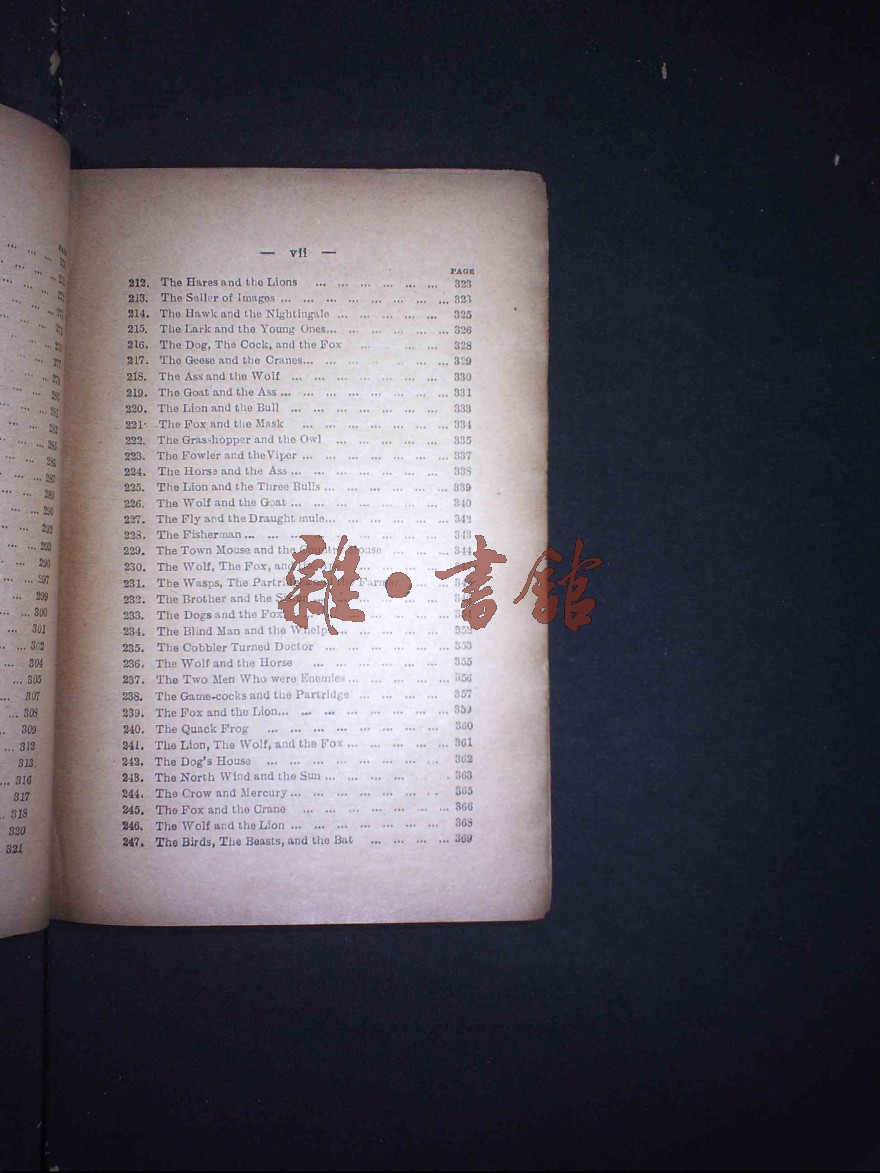 — vii —
PAGE
212. The Hares and the Lions ... ... ... ... ... ... 323
213. The Seller of Images ... ... ... ... ... ... ... ... 323
214. The Hawk and the Nightingale ... ... ... ... ... 325
215. The Lark and the Young Ones... ... ... ... ... ... 326
216. The Dog, The Cock, and the Fox ... ... ... 328
217. The Geese and the Cranes... ... ... ... ... ... 329
218. The Ass and the Wolf ... ... ... ... ... ... ... 330
219. The Goat and the Ass ... ... ... ... ... ... ... ... 331
220. The Lion and the Bull ... ... ... ... ... ... ... 333
221. The Fox and the Mask ... ... ... ... ... ... ... 334
222. The Grasshopper and the Owl ... ... ... ... ... 335
223. The Fowler and theViper ... ... ... ... ... ... ... 337
224. The Horse and the Ass ... ... ... ... ... ... ... 338
225. The Lion and the Three Bulls ... ... ... ... ... ... 339
226. The Wolf and the Goat ... ... ... ... ... ... ... 340
227. The Fly and the Draught mule... ... ... ... ... ... 342
228. The Fisherman ... ... ... ... ... ... ... ... ... 343
229. The Town Mouse and the Country Mouse ... ... ... 344
230. The Wolf, The Fox, and
231. The Wasps, The Partridges, and the Farmer ... ...
232. The Brother and the
233. The Dogs and the Fox
234. The Blind Man and the Whelp ... ... ... ... ... 352
235. The Cobbler Turned Doctor ... ... ... ... ... ... 353
236. The Wolf and the Horse ... ... ... ... ... ... 355
237. The Two Men Who were Enemies ... ... ... ... ... 356
238. The Game-cocks and the Partridge ... ... ... ... 357
239. The Fox and the Lion... ... ... ... ... ... ... ... 359
240. The Quack Frog ... ... ... ... ... ... ... ... 360
241. The Lion, The Wolf, and the Fox ... ... ... ... ... 361
242. The Dog's House ... ... ... ... ... ... ... ... 362
243. The North Wind and the Sun ... ... ... ... 363
244. The Crow and Mercury ... ... ... ... ... ... 365
245. The Fox and the Crane ... ... ... ... ... ... ... 366
246. The Wolf and the Lion ... ... ... ... ... ... ... 368
247. The Birds, The Beasts, and the Bat ... ... ... ... 369
雜·書館